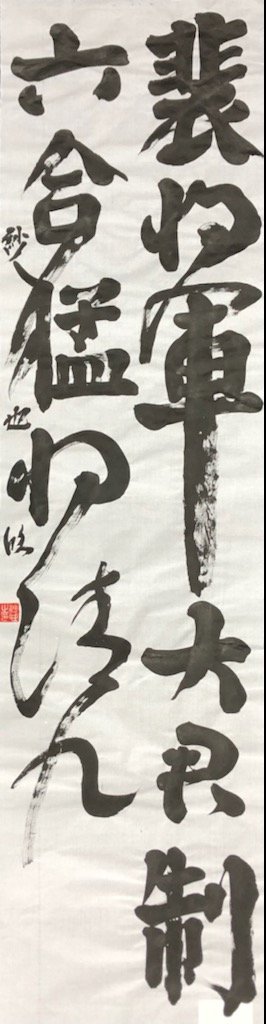 裴将軍大君制
六合猛将清九